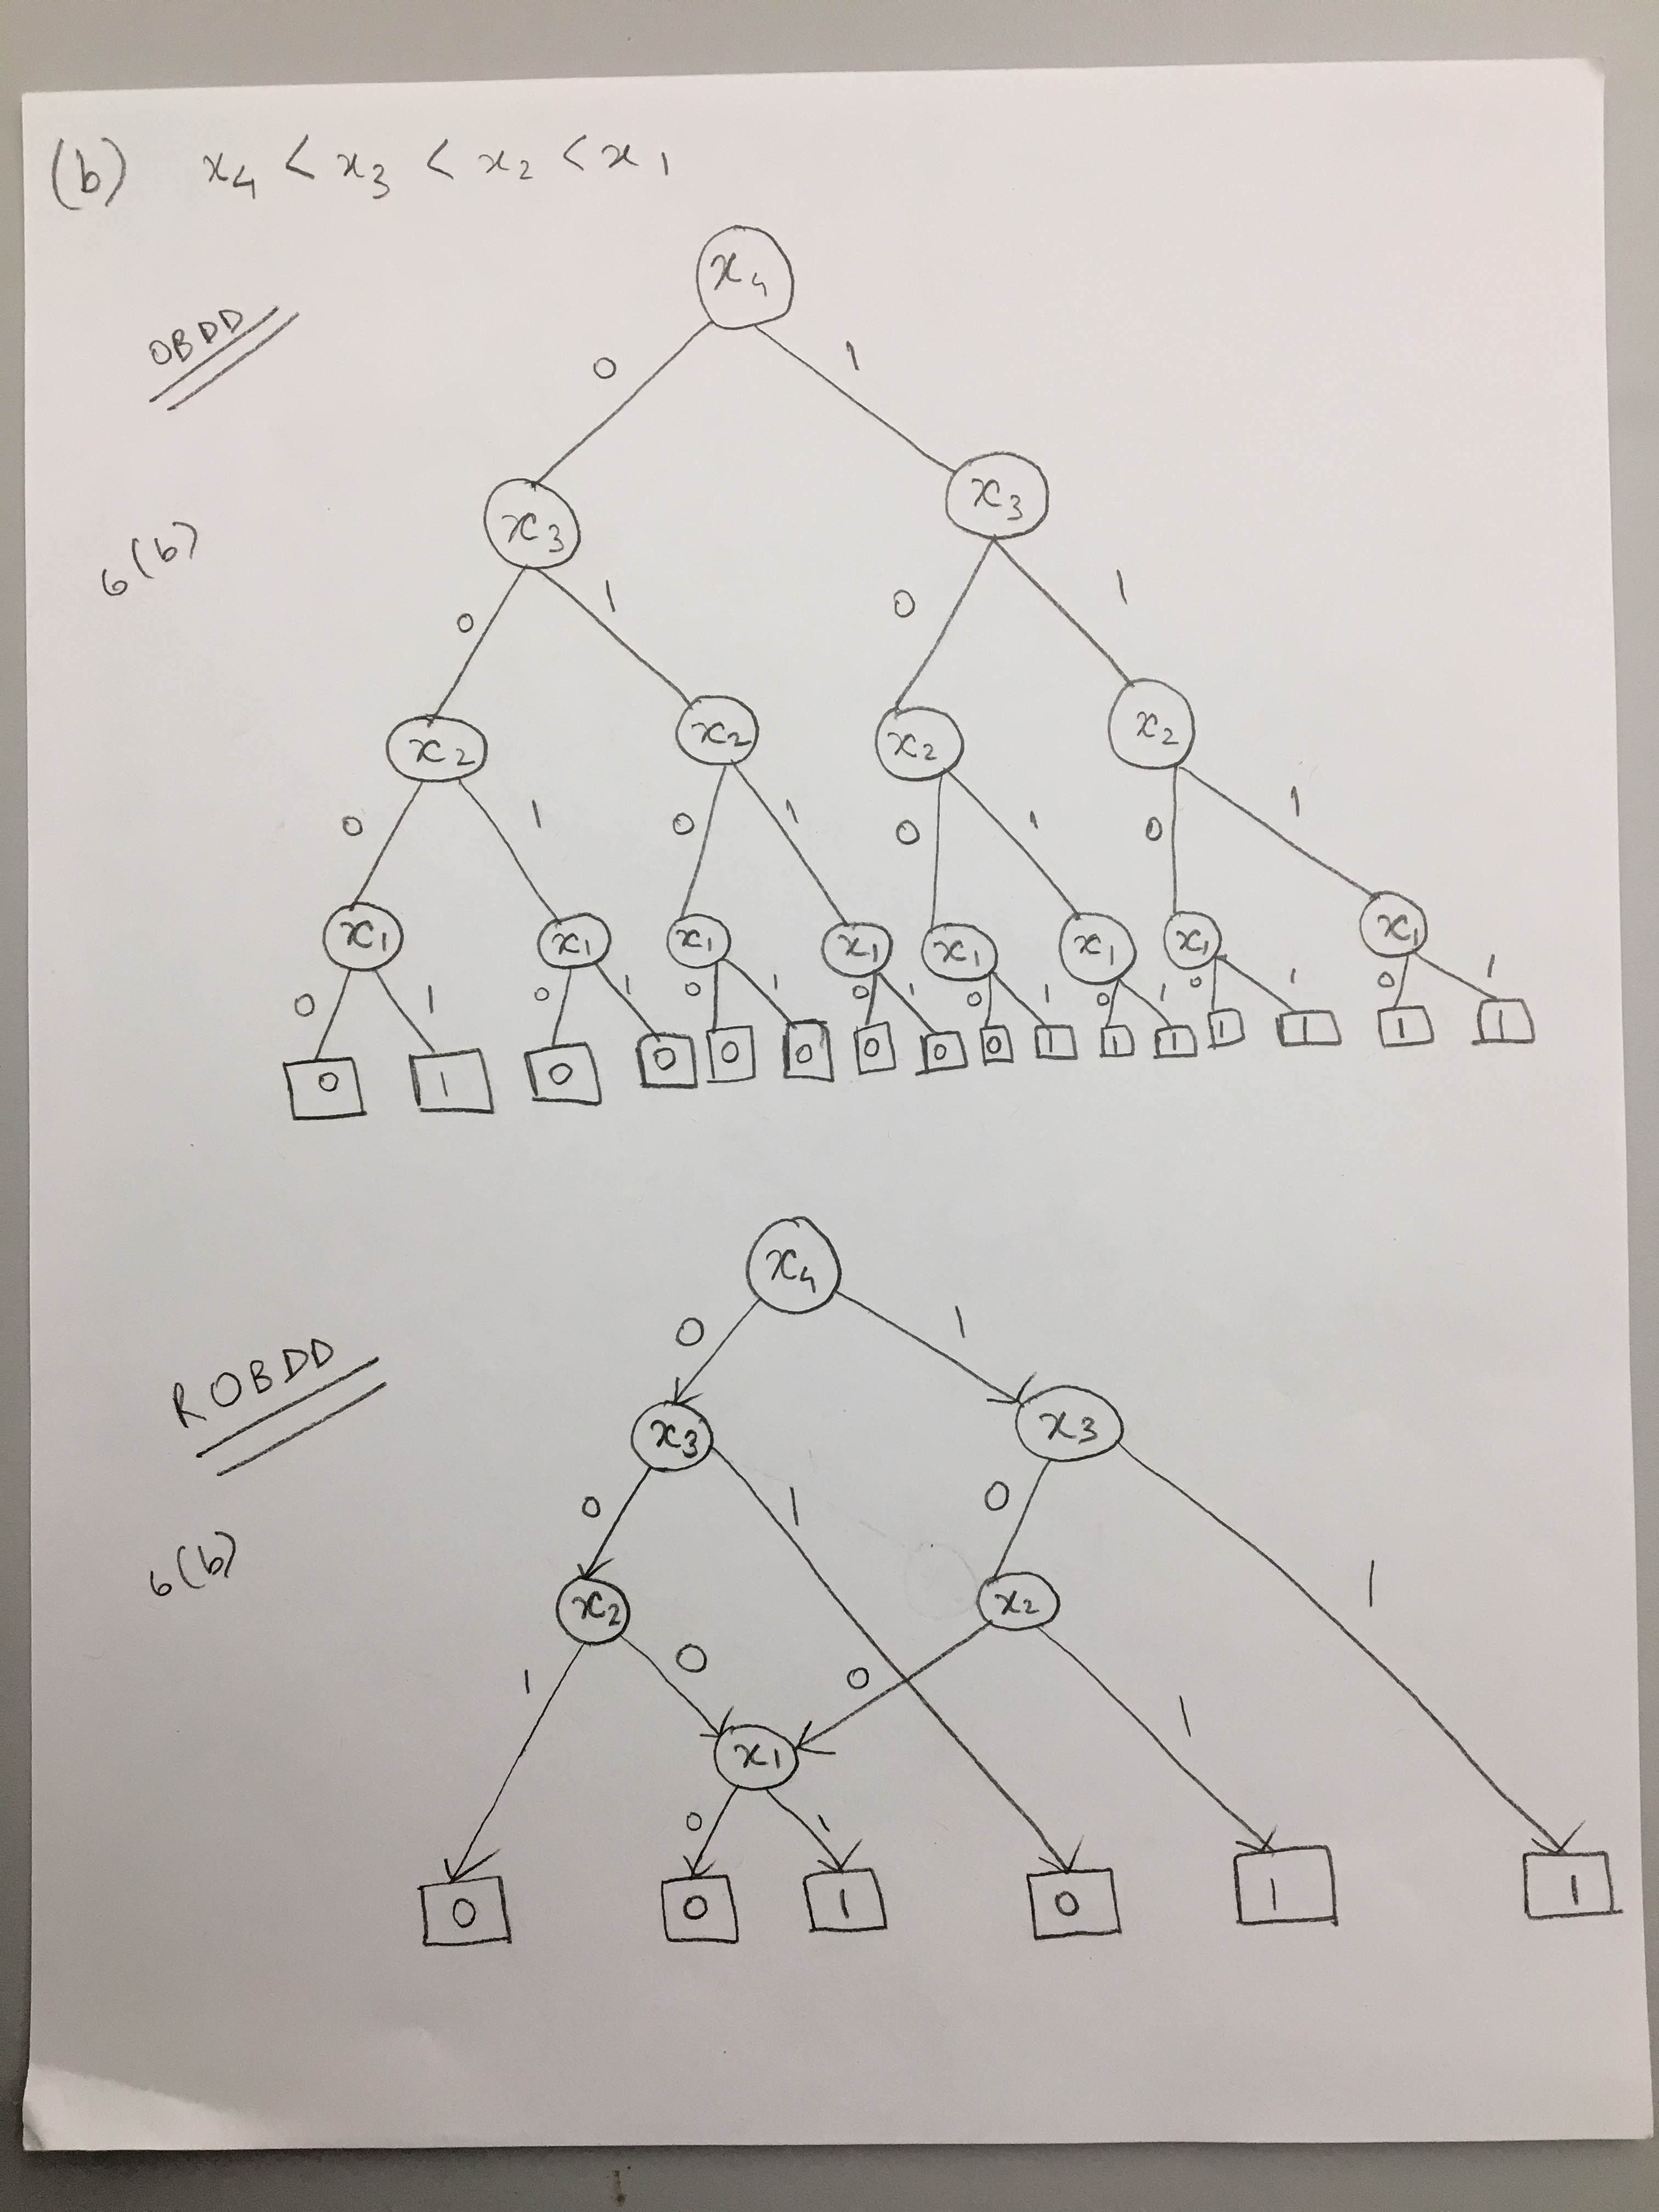 (b) x4 < x3 < x2 < x1
x4
OBDD
0 1
x3 x3
6(b)
0 1 0 1
x2 x2 x2 x2
0 1 0 1 0 1 0 1
x1 x1 x1 x1 x1 x1 x1 x1
0 1 0 1 0 1 0 1 0 1 0 1 0 1 0 1
0 1 0 0 0 0 0 0 0 1 1 1 1 1 1 1
x4
0 1
ROBDD
x3 x3
0 1 0 1
6(b)
x2 x2
1 0 0 1
x1
0 1
0 0 1 0 1 1